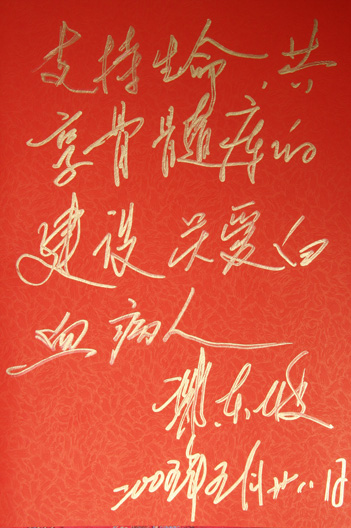 支持生命、共
享骨髓库的
建设 关爱白
血病人
东
2005年五月廿八日